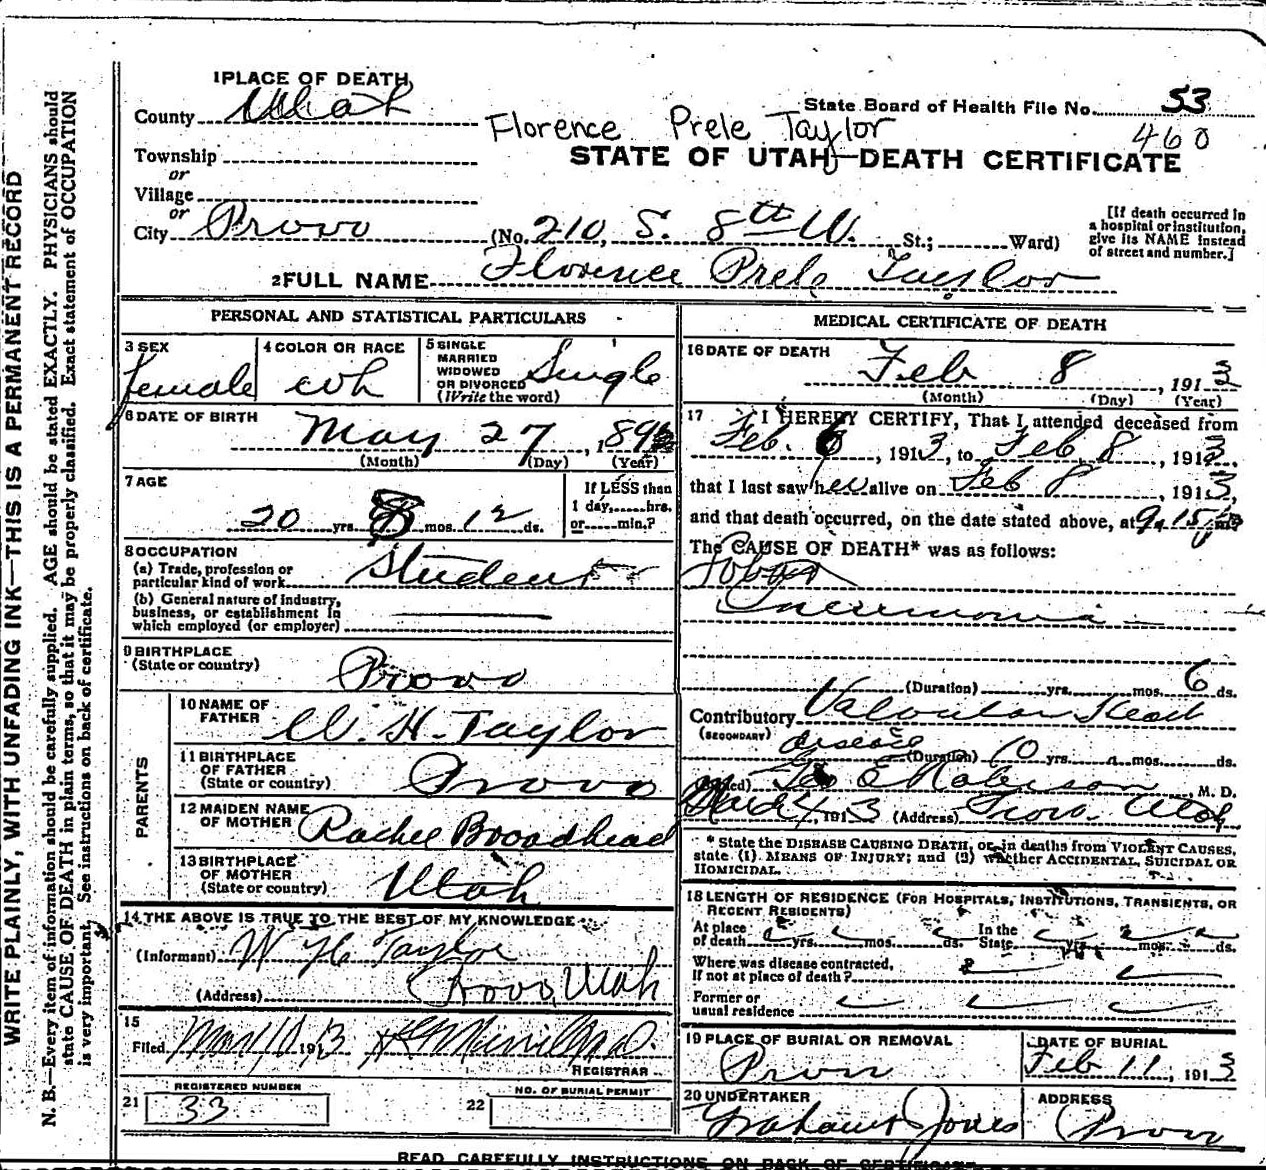 WRITE PLAINLY, WITH UNFADING INK—THIS IS A PERMANENT RECORD
N. B.—Every item of information should be carefully supplied. AGE should be stated EXACTLY. PHYSICIANS should
state CAUSE OF DEATH in plain terms, so that it may be properly classified. Exact statement of OCCUPATION
is very important. See instructions on back of certificate.
1 PLACE OF DEATH
County Utah
State Board of Health File No. 53
Florence Prele Taylor 460
Township
or
STATE OF UTAH—DEATH CERTIFICATE
Village
or
City Provo (No. 210, S. 8th W. St.; Ward)
[If death occurred in
a hospital or institution,
give its NAME instead
of street and number.]
2 FULL NAME Florence Prele Taylor
PERSONAL AND STATISTICAL PARTICULARS
3 SEX
female
4 COLOR OR RACE
wh
5 SINGLE
MARRIED
WIDOWED
OR DIVORCED
(Write the word)
Single
6 DATE OF BIRTH
May 27, 189
(Month) (Day) (Year)
7 AGE
20 yrs. 8 mos. 12 ds.
If LESS than
1 day, hrs.
or min.?
8 OCCUPATION
(a) Trade, profession or
particular kind of work Student
(b) General nature of industry,
business, or establishment in
which employed (or employer)
9 BIRTHPLACE
(State or country)
Provo
PARENTS
10 NAME OF
FATHER
W. H. Taylor
11 BIRTHPLACE
OF FATHER
(State or country)
Provo
12 MAIDEN NAME
OF MOTHER
Rachel Broadhead
13 BIRTHPLACE
OF MOTHER
(State or country)
Utah
14 THE ABOVE IS TRUE TO THE BEST OF MY KNOWLEDGE
(Informant) W H Taylor
(Address) Provo, Utah
15
Filed 1913
REGISTRAR
REGISTERED NUMBER
21 33
NO. OF BURIAL PERMIT
22
MEDICAL CERTIFICATE OF DEATH
16 DATE OF DEATH
Feb 8, 1913
(Month) (Day) (Year)
17 I HEREBY CERTIFY, That I attended deceased from
Feb. 6, 1913, to Feb 8, 1913,
that I last saw her alive on Feb 8, 1913,
and that death occurred, on the date stated above, at 9.15
The CAUSE OF DEATH* was as follows:
Lobar
Pneumonia
(Duration) yrs. mos. 6 ds.
Contributory Valvular Heart
(SECONDARY)
disease
(Duration) 10 yrs. mos. ds.
(Signed) Geo E Robinson M. D.
1913 (Address) Provo, Utah
* State the DISEASE CAUSING DEATH, or, in deaths from VIOLENT CAUSES,
state (1) MEANS OF INJURY; and (2) whether ACCIDENTAL, SUICIDAL OR
HOMICIDAL.
18 LENGTH OF RESIDENCE (FOR HOSPITALS, INSTITUTIONS, TRANSIENTS, OR
RECENT RESIDENTS)
At place
of death yrs. mos. ds.
In the
State yrs. mos. ds.
Where was disease contracted,
if not at place of death?
Former or
usual residence
19 PLACE OF BURIAL OR REMOVAL
Provo
DATE OF BURIAL
Feb 11, 1913
20 UNDERTAKER
Graham Jones
ADDRESS
Provo
READ CAREFULLY INSTRUCTIONS ON BACK OF CERTIFICATE